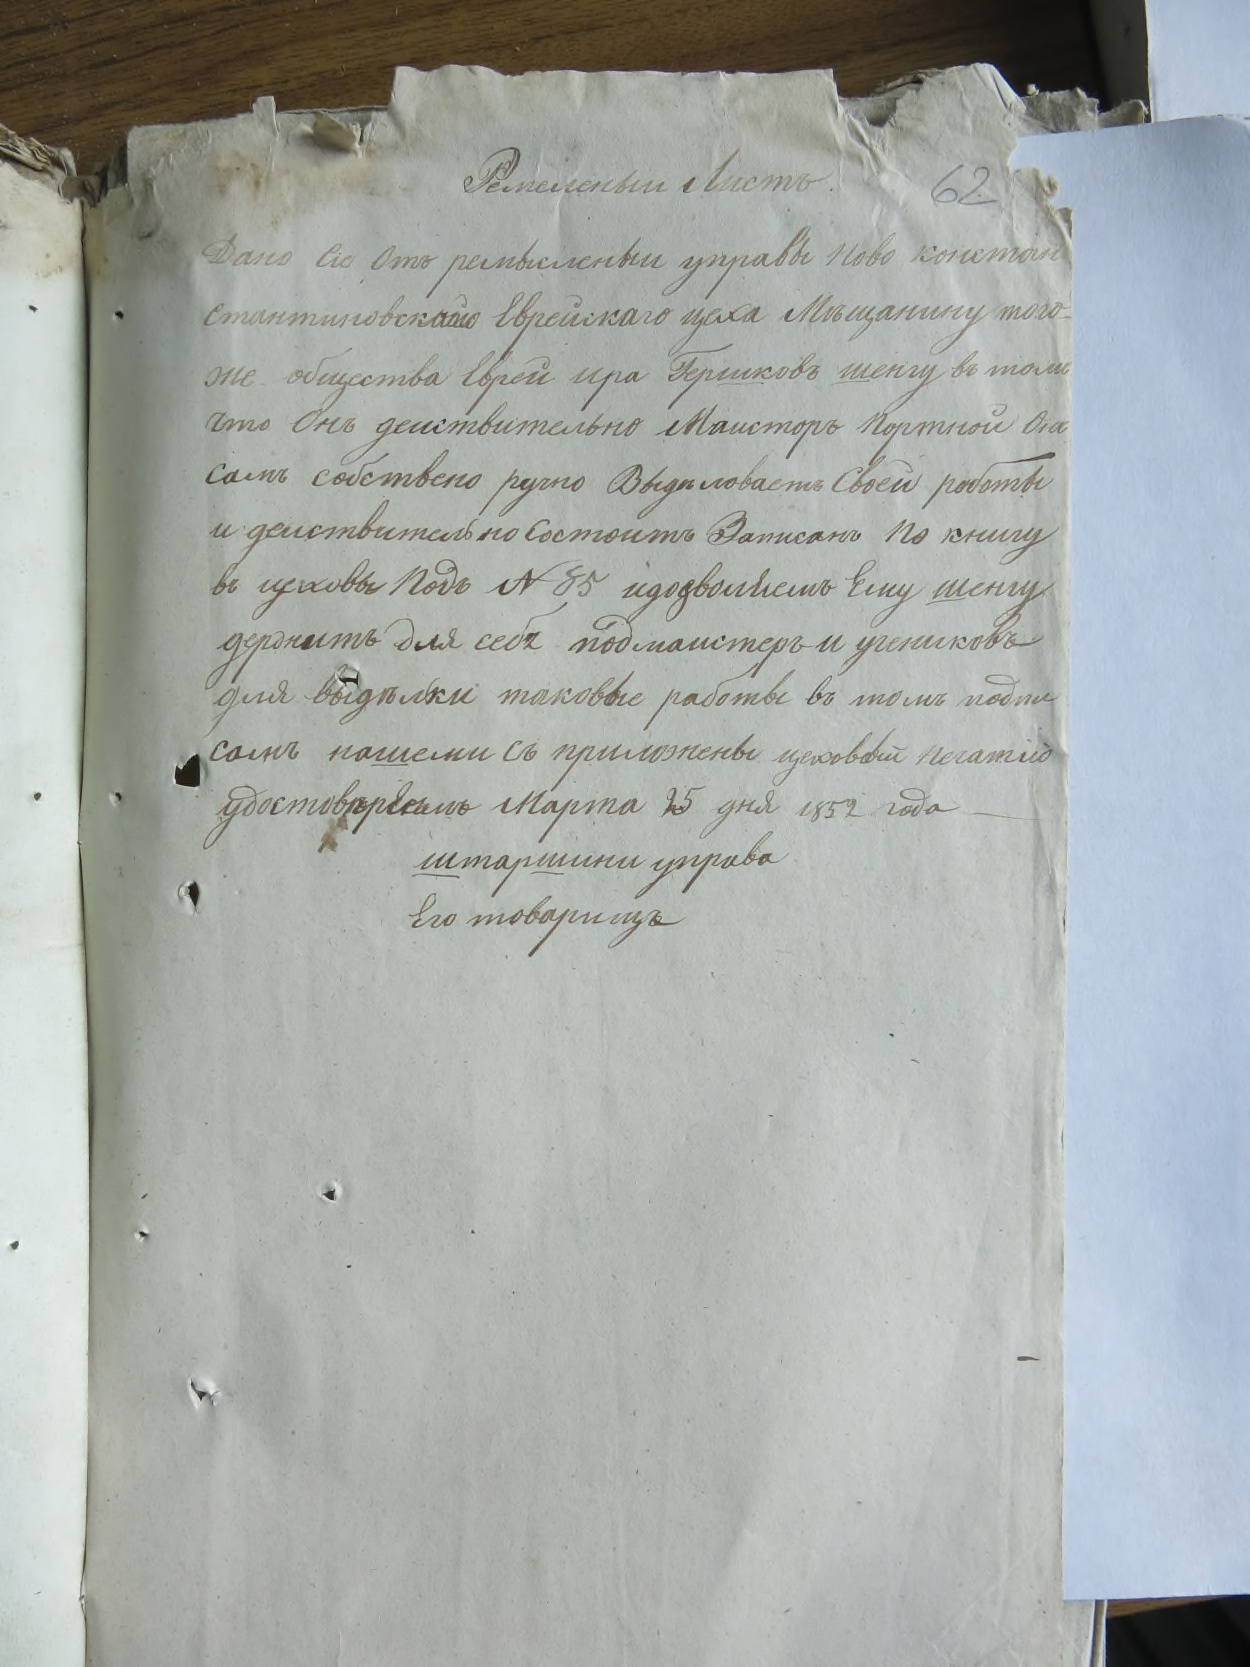 Ремеленыи Листъ.
62
Дано Сіе Отъ ремысленыи управы Ново констан
стантиновскаго Еврейскаго цеха Мъщанину того-
же общества Еврей ира Гершковъ шенгу въ томъ
что Онъ деиствительно Маисторъ Портной Онъ
самъ собствено ручно Выдъловаетъ Своей роботы
и деиствительно Состоитъ Записанъ По книгу
въ цеховы Подъ № 85 идозволяемъ Ему шенгу
держитъ для себѣ подмаистеръ и учениковъ
для выдълки таковые работы въ томъ подпи
самъ нашеми Съ приложены цеховый Печатію
удостовъряемъ Марта 25 дня 1852 года
штаршини управа
Его товарищъ